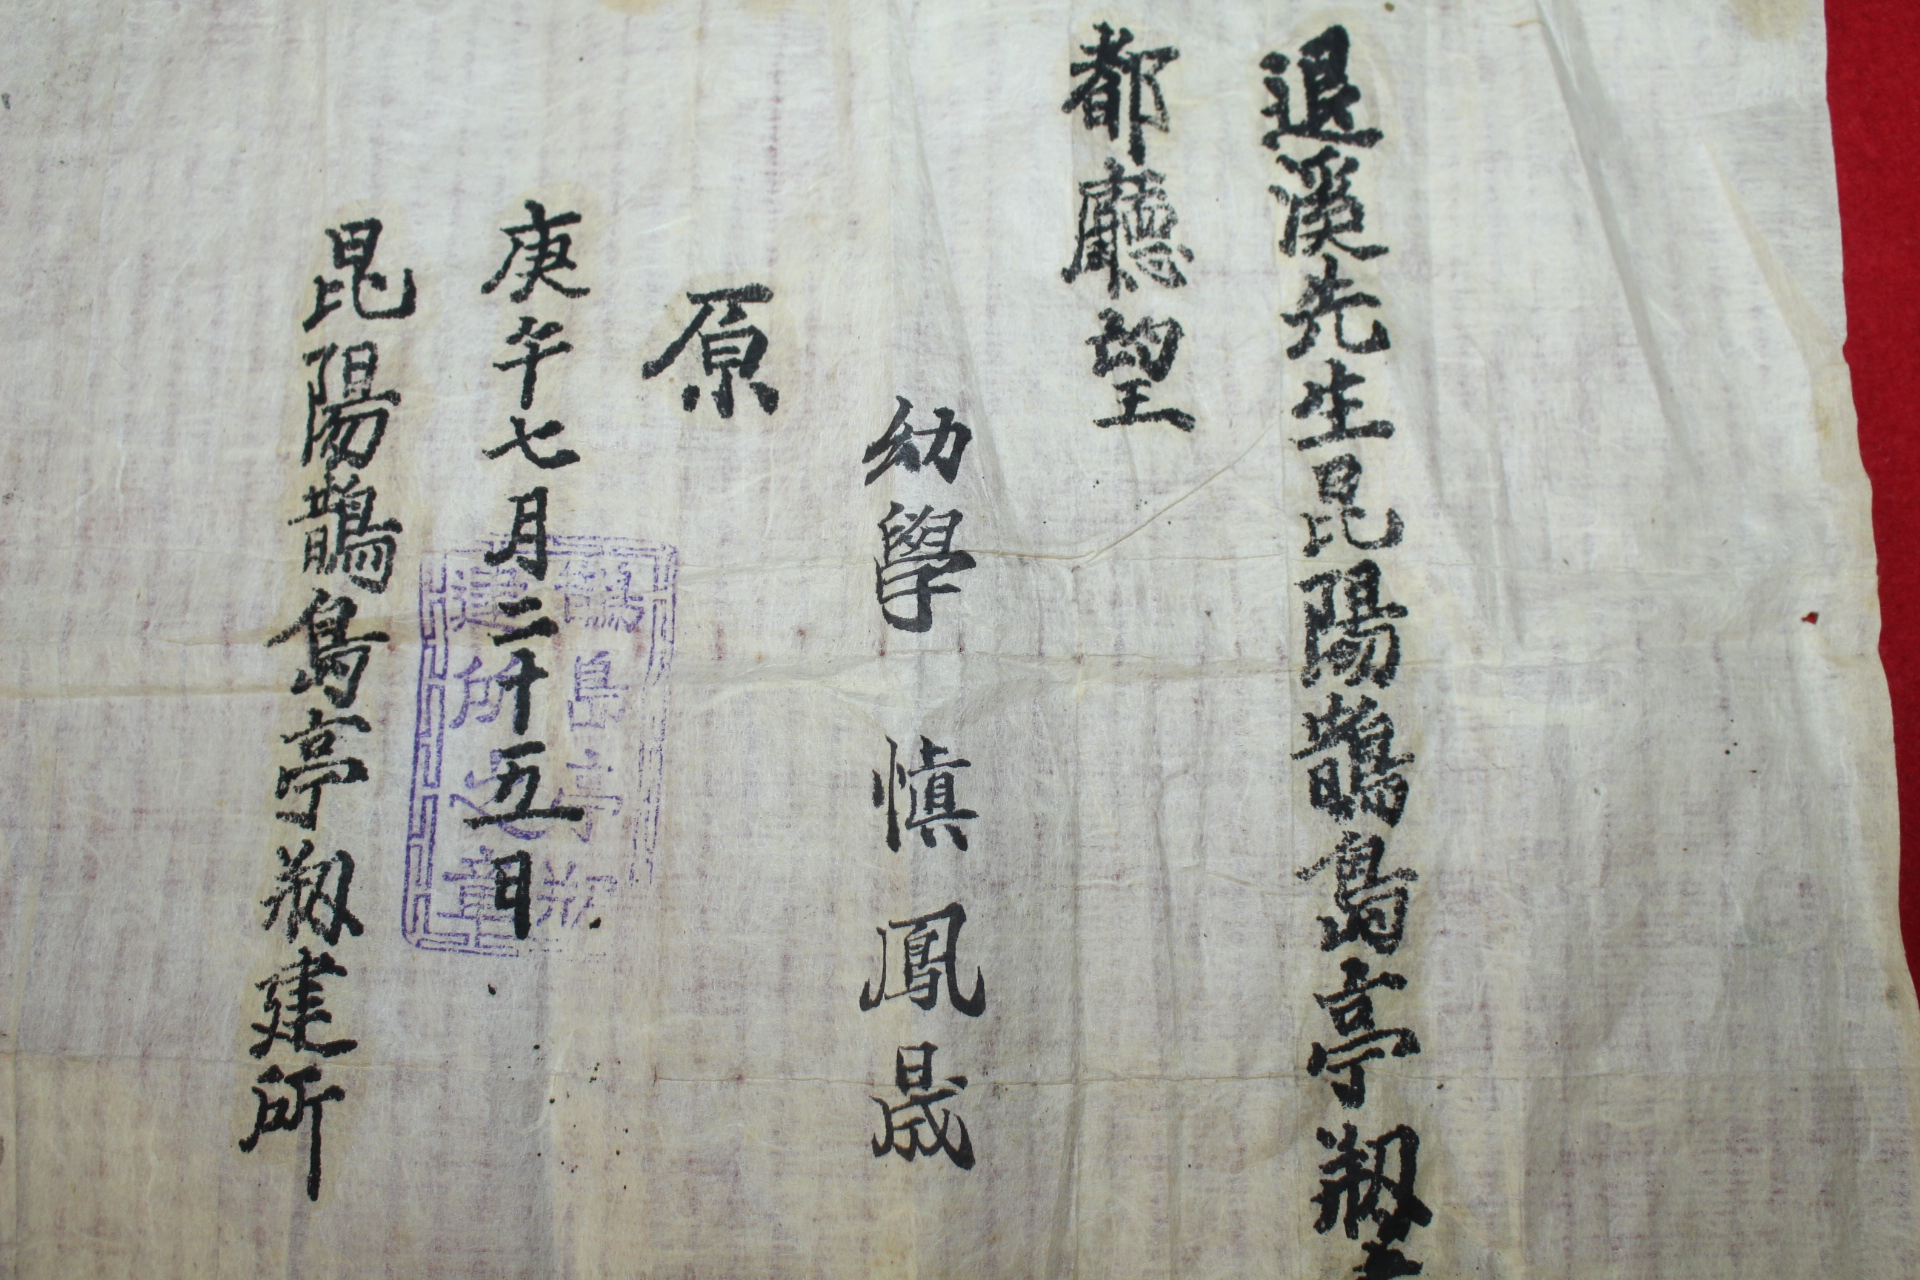 退溪先生昆陽鵲島亭刱
都廳望
幼學 愼鳳晟
原
庚午七月二十五日
昆陽鵲島亭刱建所
鵲島亭刱
建所之章